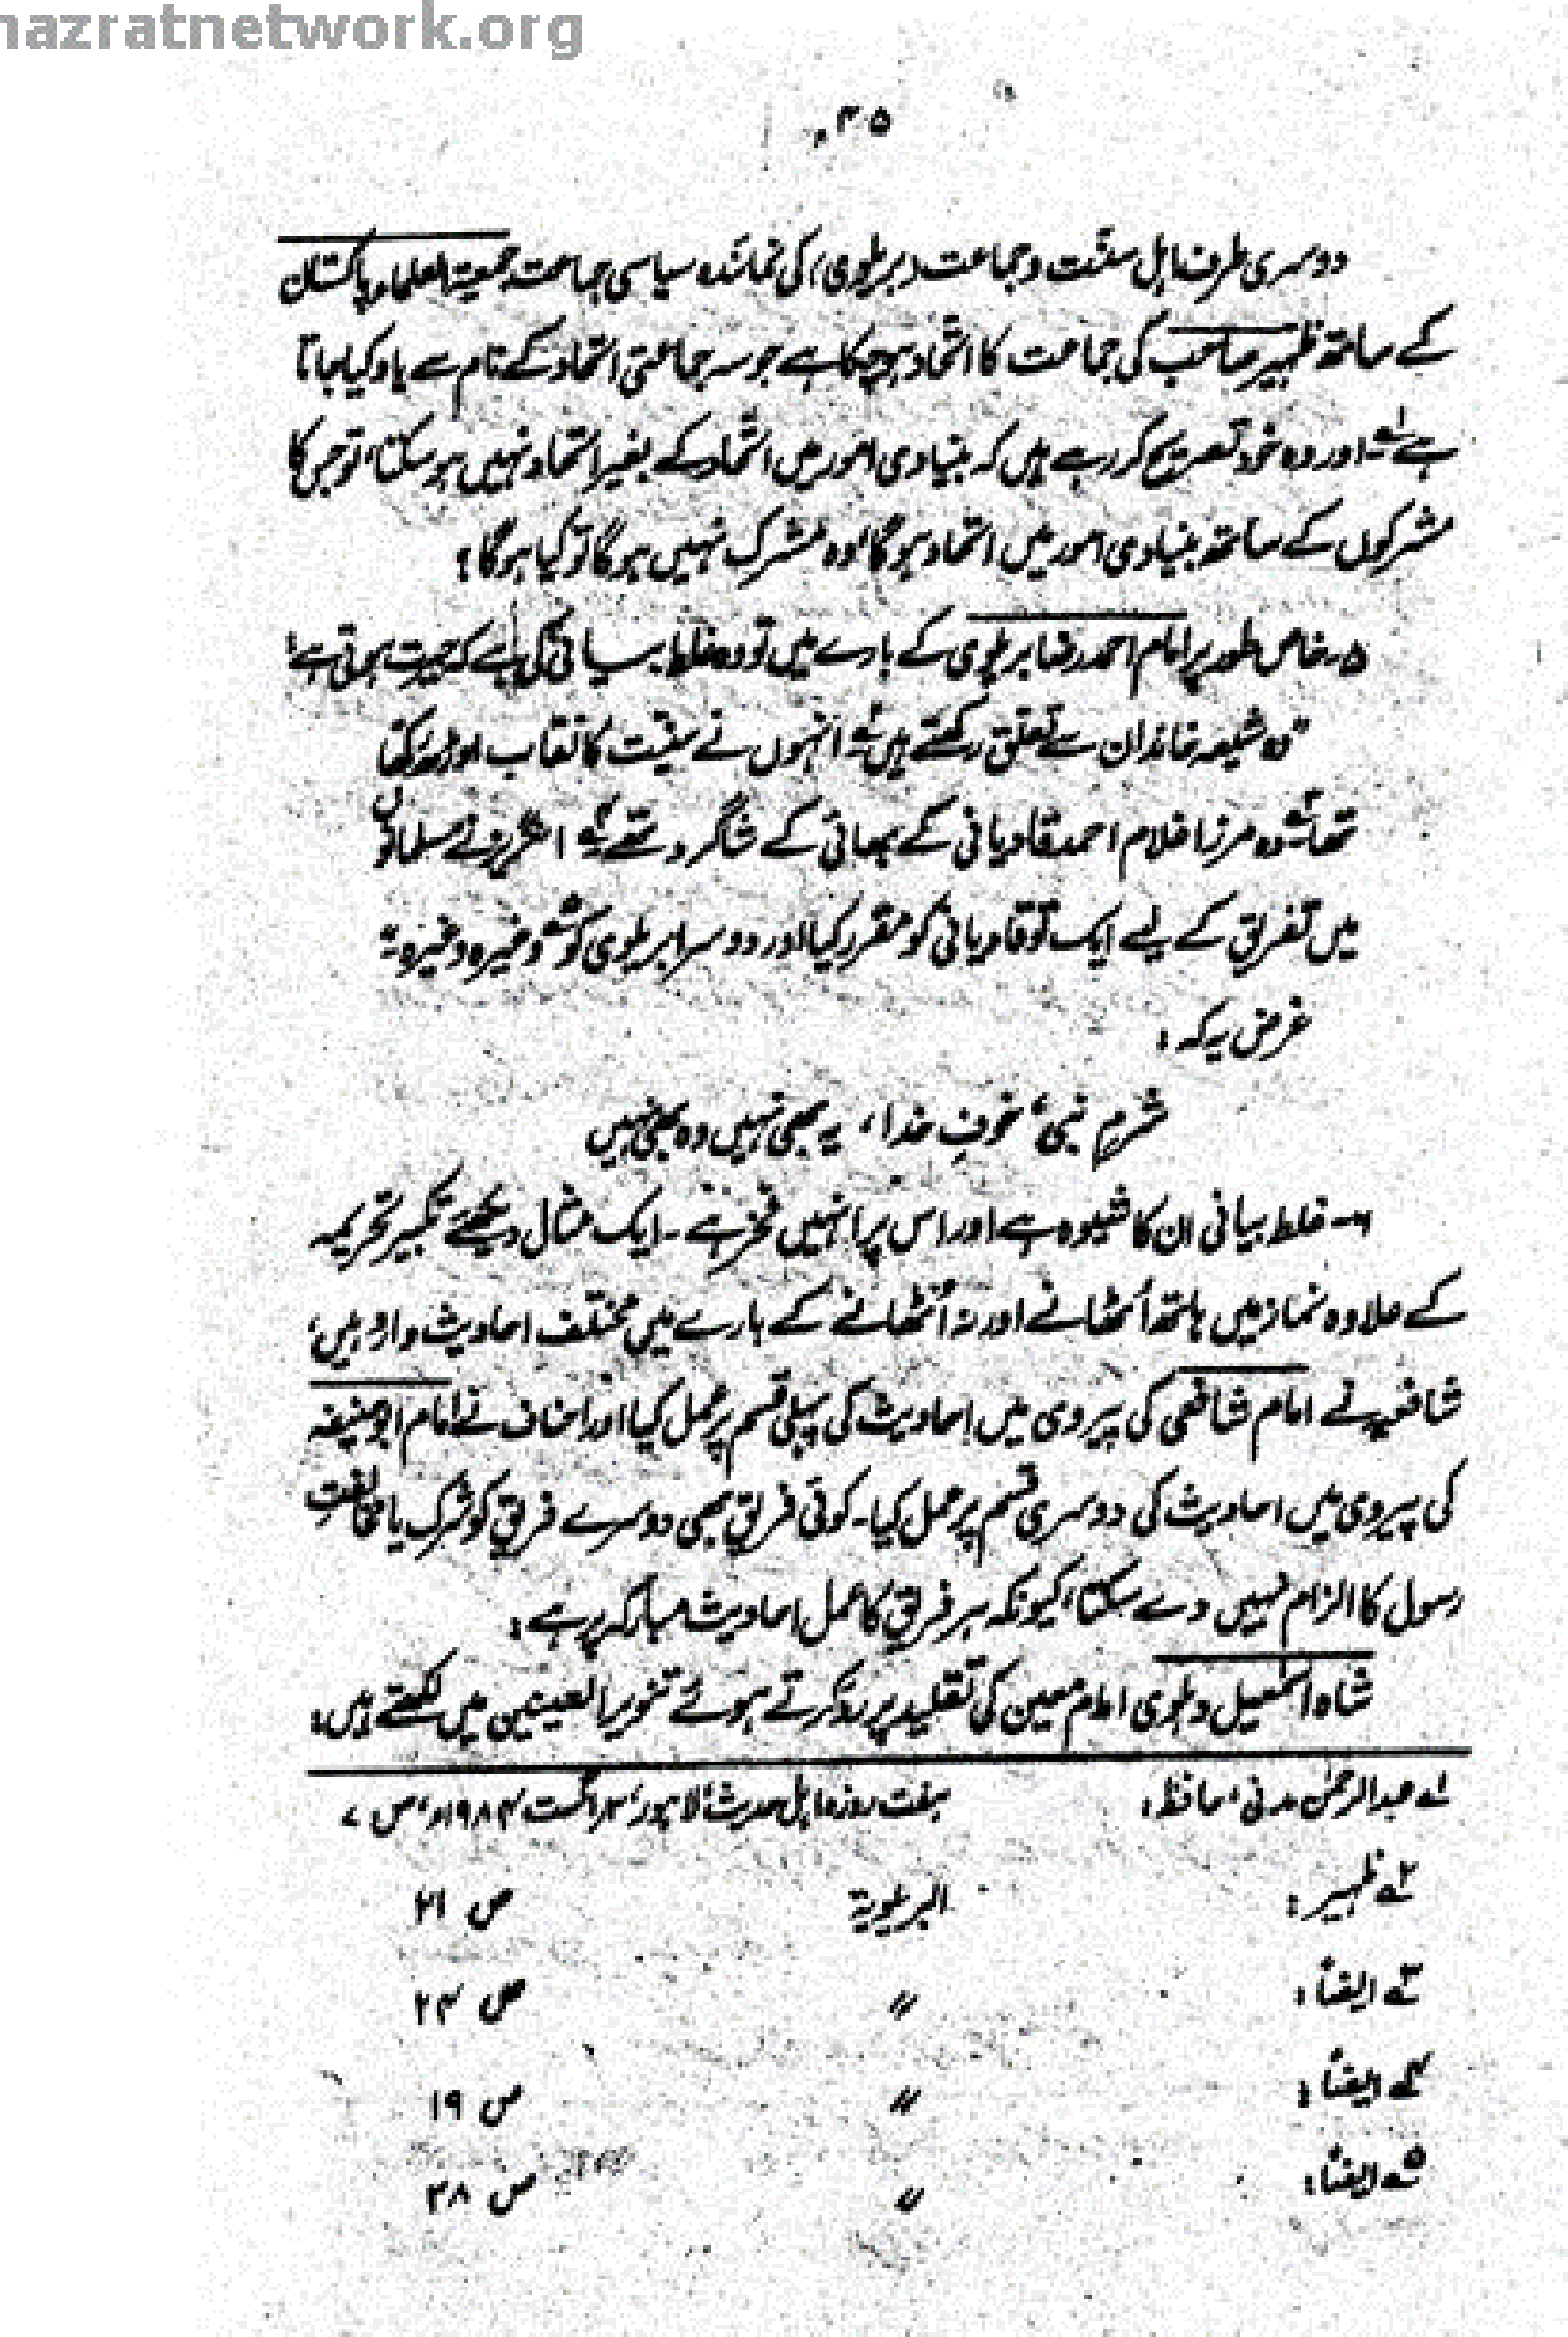 hazratnetwork.org
۳۵
دوسری طرف اہل سنّت و جماعت (بریلوی) کی نمائندہ سیاسی جماعت جمعیۃ العلماء پاکستان
کے ساتھ ظہیر صاحب کی جماعت کا اتحاد ہو چکا ہے جو سہ جماعتی اتحاد کے نام سے یاد کیا جاتا
ہے ۱؎ اور وہ خود تصریح کر رہے ہیں کہ بنیادی امور میں اتحاد کے بغیر اتحاد نہیں ہو سکتا، تو جس کا
مشرکوں کے ساتھ بنیادی امور میں اتحاد ہو گا وہ مشرک نہیں ہو گا تو کیا ہو گا؟
۵۔ خاص طور پر امام احمد رضا بریلوی کے بارے میں تو وہ غلط بیانی کی ہے کہ حیرت ہوتی ہے:
"وہ شیعہ خاندان سے تعلق رکھتے ہیں ۲؎ انہوں نے سنّیت کا نقاب اوڑھ رکھا
تھا ۳؎ وہ مرزا غلام احمد قادیانی کے بھائی کے شاگرد تھے ۴؎ انگریز نے مسلمانوں
میں تفریق کے لیے ایک تو قادیانی کو مقرر کیا اور دوسرا بریلوی کو ۵؎ وغیرہ وغیرہ"
غرض یہ کہ:
شرمِ نبی، خوفِ خدا، یہ بھی نہیں وہ بھی نہیں
۶۔ غلط بیانی ان کا شیوہ ہے اور اس پر انہیں فخر ہے۔ ایک مثال دیکھئے تکبیر تحریمہ
کے علاوہ نماز میں ہاتھ اُٹھانے اور نہ اُٹھانے کے بارے میں مختلف احادیث وارد ہیں،
شافعیہ نے امام شافعی کی پیروی میں احادیث کی پہلی قسم پر عمل کیا اور احناف نے امام ابوحنیفہ
کی پیروی میں احادیث کی دوسری قسم پر عمل کیا۔ کوئی فریق بھی دوسرے فریق کو شرک یا مخالفتِ
رسول کا الزام نہیں دے سکتا، کیونکہ ہر فریق کا عمل احادیث مبارکہ پر ہے:
شاہ اسمٰعیل دہلوی امام معین کی تقلید پر رد کرتے ہوئے تنویر العینین میں لکھتے ہیں:
۱؎ عبدالرحمٰن مدنی، حافظ: ہفت روزہ اہل حدیث، لاہور، ۳ اگست ۱۹۸۴ء، ص ۷
۲؎ ظہیر: البریلویۃ ص ۲۱
۳؎ ایضاً: // ص ۲۴
۴؎ ایضاً: // ص ۱۹
۵؎ ایضاً: // ص ۳۸